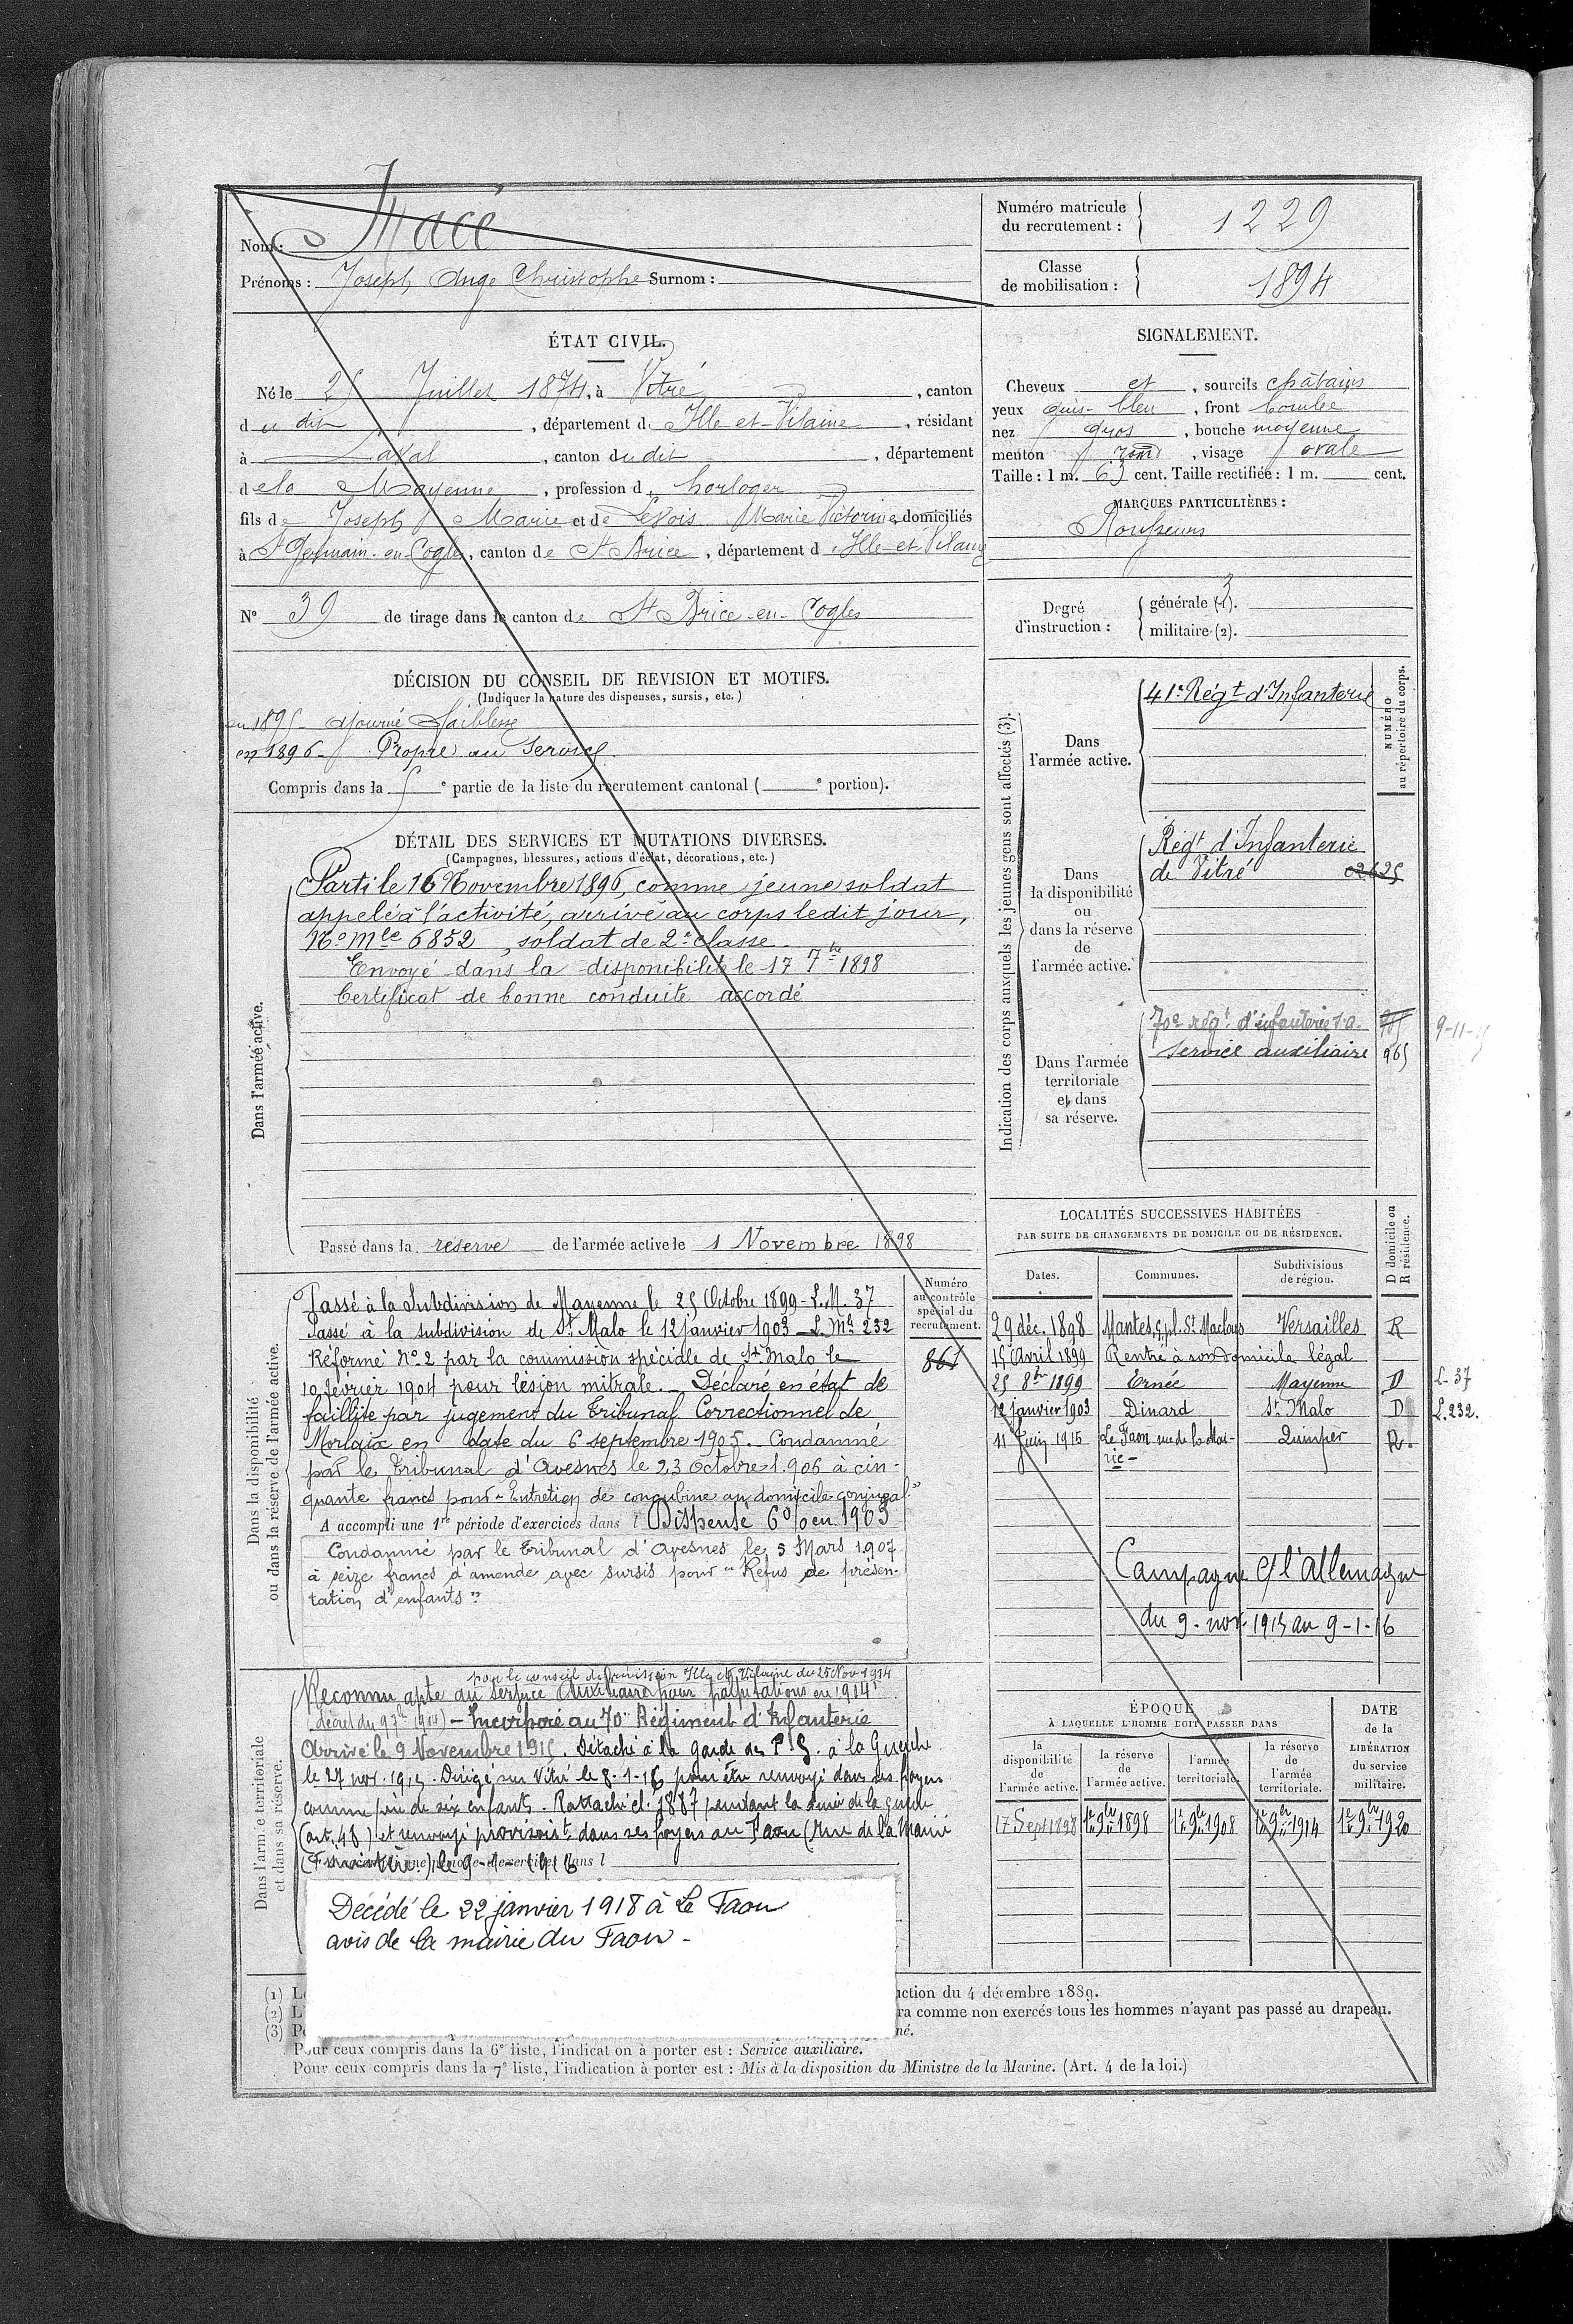 Nom : Macé
Prénoms : Joseph Ange Christophe Surnom :
Numéro matricule du recrutement : 1229
Classe de mobilisation : 1894
ÉTAT CIVIL.
Né le 25 Juillet 1874, à Vitré, canton
du dit, département d'Ille-et-Vilaine, résidant
à Laval, canton dudit, département
de la Mayenne, profession d'horloger
fils de Joseph Marie et de Marie Victorine, domiciliés
à St Germain-en-Cogles, canton de St Brice, département d'Ille-et-Vilaine
N° 39 de tirage dans le canton de St Brice-en-Cogles
SIGNALEMENT.
Cheveux et, sourcils châtains
yeux gris-bleu, front bombé
nez gros, bouche moyenne
menton rond, visage ovale
Taille : 1 m. 63 cent. Taille rectifiée : 1 m. cent.
MARQUES PARTICULIÈRES :
Rousseurs
Degré d'instruction : générale (1). 3
militaire (2).
DÉCISION DU CONSEIL DE REVISION ET MOTIFS.
(Indiquer la nature des dispenses, sursis, etc.)
en 1895 - ajourné faiblesse
en 1896 - Propre au service
Compris dans la 5e partie de la liste du recrutement cantonal ( e portion).
DÉTAIL DES SERVICES ET MUTATIONS DIVERSES.
(Campagnes, blessures, actions d'éclat, décorations, etc.)
Dans l'armée active.
Parti le 16 Novembre 1896, comme jeune soldat
appelé à l'activité, arrivé au corps ledit jour,
No Mle 6852, soldat de 2e classe.
Envoyé dans la disponibilité le 17 7bre 1898
Certificat de bonne conduite accordé
Passé dans la réserve de l'armée active le 1 Novembre 1898
Indication des corps auxquels les jeunes gens sont affectés (3).
NUMÉRO au répertoire du corps.
Dans l'armée active.
41e Régt d'Infanterie
Dans la disponibilité ou dans la réserve de l'armée active.
Régt d'Infanterie
de Vitré 02625
Dans l'armée territoriale et dans sa réserve.
70e régt d'infanterie 9-11-15
Service auxiliaire 965
Dans la disponibilité ou dans la réserve de l'armée active.
Numéro au contrôle spécial du recrutement.
861
Passé à la Subdivision de Mayenne le 25 Octobre 1899 - L.M. 37
Passé à la subdivision de St Malo le 12 janvier 1903 - L. Mle 232
Réformé No 2 par la commission spéciale de St Malo le
10 février 1904 pour lésion mitrale. - Déclaré en état de
faillite par jugement du Tribunal Correctionnel de
Morlaix en date du 6 septembre 1905. - Condamné
par le Tribunal d'Avesnes le 23 Octobre 1906 à cin-
quante francs pour "Entretien de concubine au domicile conjugal"
A accompli une 1re période d'exercices dans l Dispensé 6 0/0 en 1903
Condamné par le Tribunal d'Avesnes le 5 Mars 1907
à seize francs d'amende avec sursis pour "Refus de présen-
tation d'enfants"
LOCALITÉS SUCCESSIVES HABITÉES
PAR SUITE DE CHANGEMENTS DE DOMICILE OU DE RÉSIDENCE.
Dates. Communes. Subdivisions de région. D domicile ou R résidence.
29 déc. 1898 Mantes, 5 pl. St Maclou Versailles R
15 Avril 1899 Rentré à son domicile légal
25 8bre 1899 Ernée Mayenne D L-37
12 janvier 1903 Dinard St Malo D L.232.
11 Juin 1915 Le Faou rue de la Mai-
rie - Quimper R.
Campagne Ct l'Allemagne
du 9-nov-1915 au 9-1-16
Dans l'armée territoriale et dans sa réserve.
par le conseil de révision Ille et Vilaine du 25 Nov 1914
Reconnu apte au service Auxiliaire pour palpitations en 1914
(décret du 9 1914) - Incorporé au 70e Régiment d'Infanterie
Arrivé le 9 Novembre 1915. Détaché à la garde des P.G. à la Guerche
le 27 nov. 1915. Dirigé sur Vitré le 8-1-16 pour être renvoyé dans ses foyers
comme père de six enfants. Rattaché cl. 1887 pendant la durée de la guerre
(art. 48) et renvoyé provisoirt dans ses foyers au Faou (Rue de la Mairie
(Finistère) le 9-1-1916
Décédé le 22 janvier 1918 à Le Faou
avis de la mairie du Faou -
ÉPOQUE
À LAQUELLE L'HOMME DOIT PASSER DANS
DATE de la LIBÉRATION du service militaire.
la disponibilité de l'armée active. la réserve de l'armée active. l'armée territoriale. la réserve de l'armée territoriale.
17 Sept 1898 1er 9bre 1898 1er 9bre 1908 1er 9bre 1914 1er 9bre 1920
(1) L
ction du 4 décembre 1889.
(2) L
ra comme non exercés tous les hommes n'ayant pas passé au drapeau.
(3) P
né.
Pour ceux compris dans la 6e liste, l'indication à porter est : Service auxiliaire.
Pour ceux compris dans la 7e liste, l'indication à porter est : Mis à la disposition du Ministre de la Marine. (Art. 4 de la loi.)